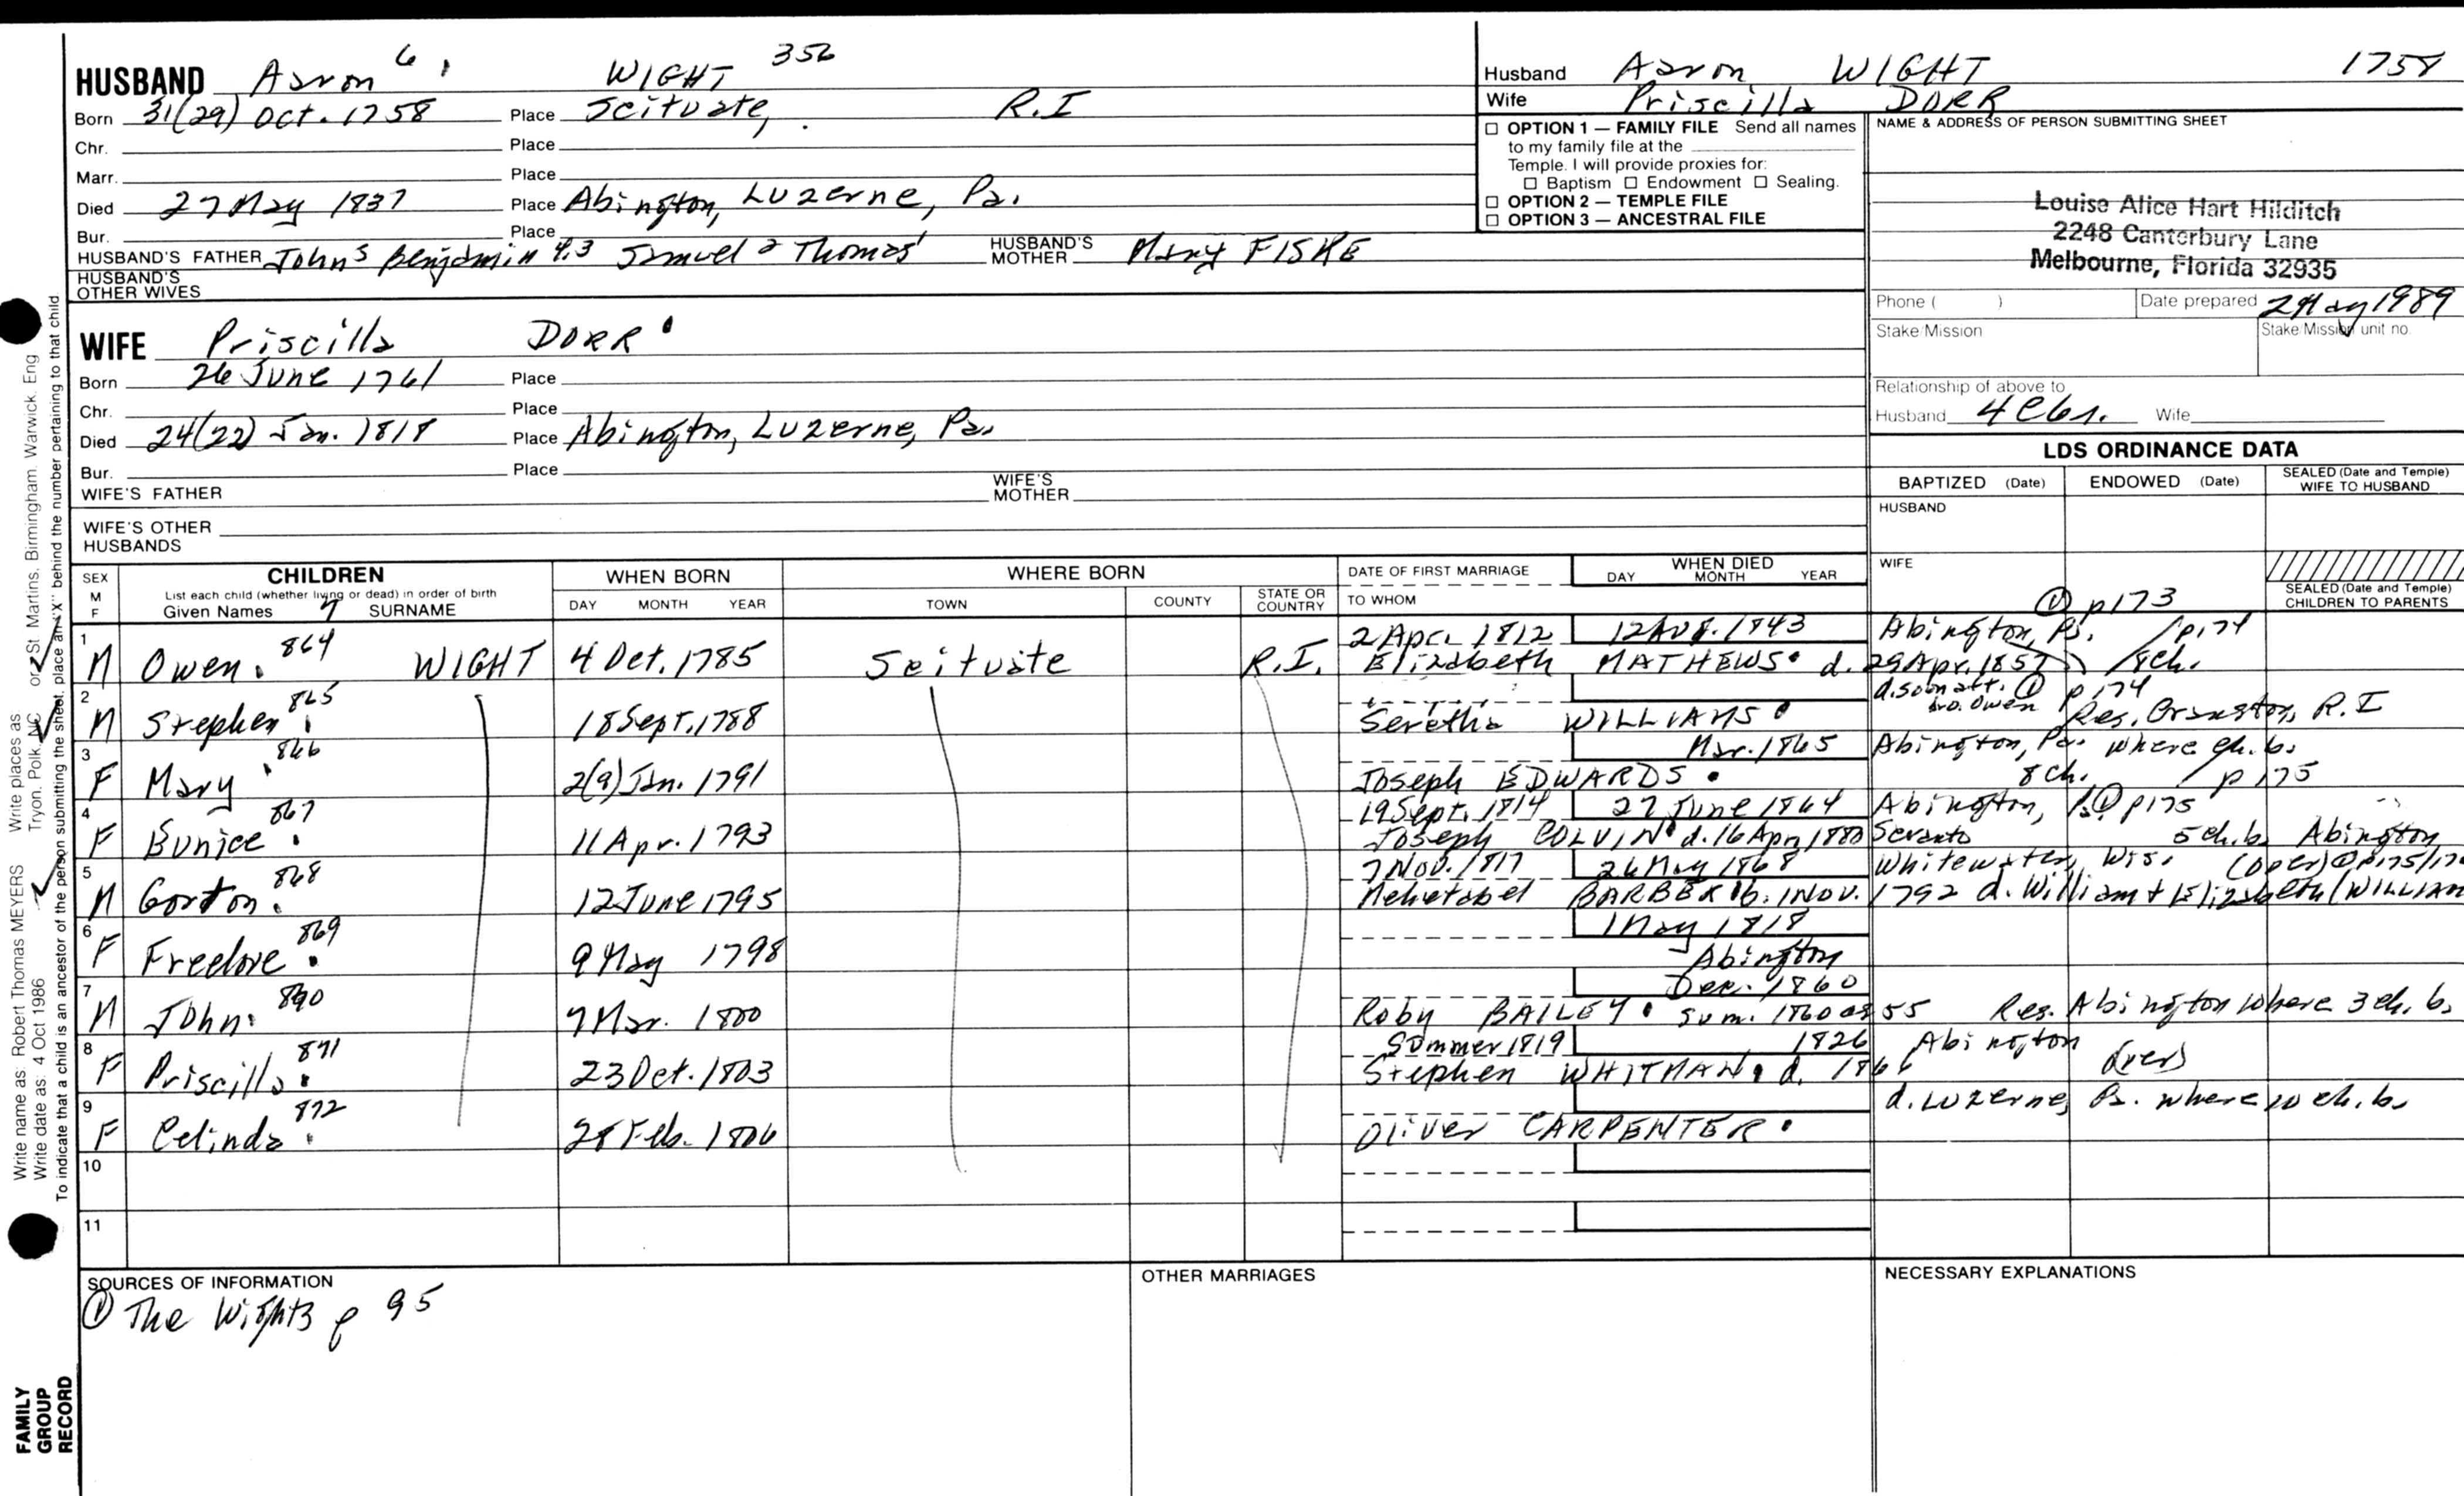 HUSBAND Aaron 6. WIGHT 356
Born 31(29) Oct. 1758 Place Scituate, R.I
Chr. Place
Marr. Place
Died 27 May 1837 Place Abington, Luzerne, Pa.
Bur. Place
HUSBAND'S FATHER John 5 Benjamin 4,3 Samuel 2 Thomas 1 HUSBAND'S MOTHER Mary FISKE
HUSBAND'S OTHER WIVES
WIFE Priscilla DORR
Born 26 June 1761 Place
Chr. Place
Died 24(22) Jan. 1818 Place Abington, Luzerne, Pa.
Bur. Place
WIFE'S FATHER WIFE'S MOTHER
WIFE'S OTHER HUSBANDS
Husband Aaron WIGHT 1758
Wife Priscilla DORR
OPTION 1 — FAMILY FILE Send all names
to my family file at the
Temple. I will provide proxies for:
Baptism Endowment Sealing.
OPTION 2 — TEMPLE FILE
OPTION 3 — ANCESTRAL FILE
NAME & ADDRESS OF PERSON SUBMITTING SHEET
Louise Alice Hart Hilditch
2248 Canterbury Lane
Melbourne, Florida 32935
Phone ( ) Date prepared 2 May 1989
Stake/Mission Stake/Mission unit no.
Relationship of above to
Husband Wife
LDS ORDINANCE DATA
BAPTIZED (Date) ENDOWED (Date) SEALED (Date and Temple) WIFE TO HUSBAND
HUSBAND
WIFE
SEALED (Date and Temple) CHILDREN TO PARENTS
① p173
SEX M F
CHILDREN
List each child (whether living or dead) in order of birth
Given Names 7 SURNAME
WHEN BORN
DAY MONTH YEAR
WHERE BORN
TOWN COUNTY STATE OR COUNTRY
DATE OF FIRST MARRIAGE
TO WHOM
WHEN DIED
DAY MONTH YEAR
1 M Owen. 864 WIGHT 4 Oct. 1785 Scituate R.I. 2 Apr. 1812 12 Aug. 1843 Abington, Pa. /p174
Elizabeth MATHEWS d. 29 Apr. 1857 /8ch.
2 M Stephen 865 18 Sept. 1788 d. soon aft. ① p174
bro. Owen
Seretha WILLIAMS Res. Cranston, R.I
3 F Mary 866 2(9) Jan. 1791 Mar. 1865 Abington, Pa. where ch. b.
Joseph EDWARDS 8ch. /p175
4 F Eunice 867 11 Apr. 1793 19 Sept. 1814 27 June 1864 Abington, ① p175
Joseph COLVIN d. 16 Apr. 1880 5 ch. b. Abington
5 M Gorton. 868 12 June 1795 7 Nov. 1817 26 May 1868 Whitewater, Wis. (over) ① p.175/17
Mehetabel BARBER b. 1 Nov. 1792 d. William + Elizabeth (WILLIAM
6 F Freelove 869 9 May 1798 1 May 1818
Abington
7 M John 890 7 Mar. 1800 Dec. 1860
Roby BAILEY sum. 1860 55 Res. Abington where 3 ch. b.
8 F Priscilla 871 23 Oct. 1803 Summer 1819 1826 Abington
Stephen WHITMAN d. 1866 (over)
9 F Celinda 872 28 Feb. 1806 d. Luzerne, Pa. where 10 ch. b.
Oliver CARPENTER
10
11
SOURCES OF INFORMATION
① The Wights p 95
OTHER MARRIAGES
NECESSARY EXPLANATIONS
Write name as: Robert Thomas MEYERS Write places as Tryon, Polk, NC or St. Martins, Birmingham, Warwick, Eng
Write date as: 4 Oct 1986
To indicate that a child is an ancestor of the person submitting the sheet, place an "X" behind the number pertaining to that child
FAMILY
GROUP
RECORD